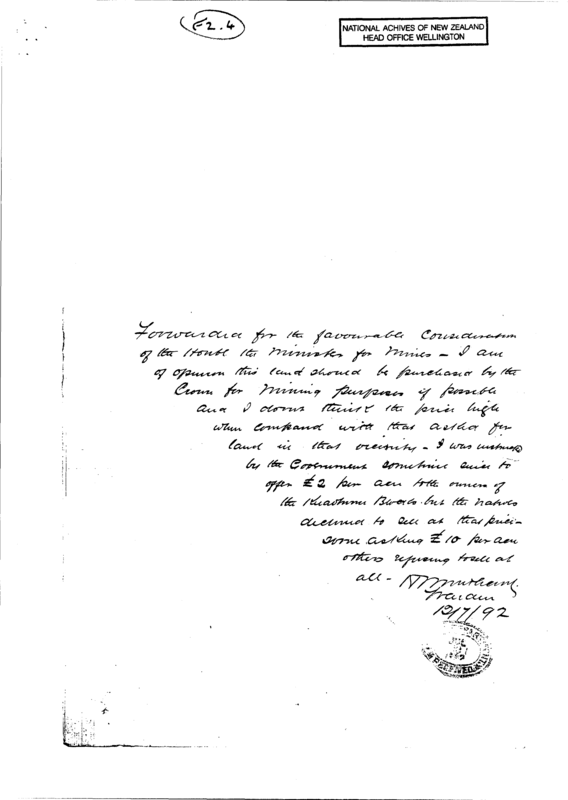 F2.4
NATIONAL ACHIVES OF NEW ZEALAND
HEAD OFFICE WELLINGTON
Forwarded for the favourable Consideration
of the Honble the Minister for Mines - I am
of opinion this land should be purchased by the
Crown for Mining Purposes if possible
and I dont think the price high
when compared with that asked for
land in that vicinity - I was instructed
by the Government sometime since to
offer £2 per acre to the owners of
the Blocks but the natives
declined to sell at that price -
some asking £10 per acre
others refusing to sell at
all -
Warden
12/7/92
RECEIVED